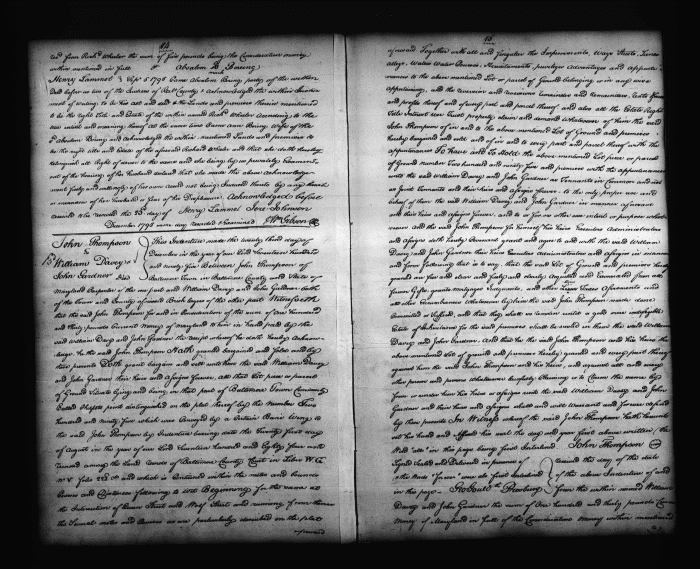 14
ted from Richd Wheeler the sum of five pounds being the Consideration money
within mentioned in full Absalom B Boring
mark
Henry Lammot } Sepr 5 1795 Came Absalom Boring party of the within
Deed before us two of the Justices of Balt County & Acknowledged the within Instru=
ment of writing to be his act and deed & the Lands and premises therein mentioned
to be the right Title and Estate of the within named Richd Wheeler According to the
true intent and meaning thereof at the same time Boring Wife of the
sd Absalom Boring and acknowledged the within mentioned Lands and premises to
be the right title and Estate of the aforesaid Richard Wheeler and that she doth thereby
relinquish all Right of dower to the same and she being by us privately Examined
out of the hearing of her husband declared that she made the above acknowledge=
ment freely and willingly of her own accord not being Induced thereto by any threats
or menaces of her husband or fear of his Displeasure Acknowledged before
Henry Lammot
December 1795 same day recorded & Examined Wm Gibson
John Thompson
to
William Darcy &
John Gardner Deed
This Indenture made the twenty third day of
December in the year of our Lord Seventeen hundred
and ninety five Between John Thompson of
Baltimore Town in Baltimore County and State of
Maryland Carpenter of the one part and William Darcy and John Gardner both
of the Town and County aforesaid Brick layers of the other part Witnesseth
that the said John Thompson for and in Consideration of the sum of One hundred
and thirty pounds Current Money of Maryland to him in hand paid by the
said William Darcy and John Gardner the receipt whereof he doth hereby Acknow=
ledge he the said John Thompson Hath granted bargained and sold and by
these presents Doth grant bargain and sell unto them the said William Darcy
and John Gardner their heirs and Assigns forever, all that Lot piece or parcel
of Ground Situate lying and being in that part of Baltimore Town Commonly
Called Fells point distinguished on the plat thereof by the Number Two
hundred and ninety five which was Conveyed by a Certain
the said John Thompson by Indenture bearing date the Twenty first day
of August in the year of our Lord Seventeen hundred and Eighty four and
recorded among the Land Records of Baltimore County Court in Liber W G
No V folio and which is Contained within the metes and bounds
Courses and Distances following to wit Beginning for the same at
the Intersection of Street and Wolf Street and running from thence
the Several Metes and Bounds as are particularly described on the plat
aforesaid
15
aforesaid Together with all and singular the Improvements, Ways Streets, Lanes
alleys, Waters Water Courses, Hereditaments privileges Advantages and Appurte=
nances to the above mentioned Lot or parcel of Ground belonging or in any wise
appertaining, and the reversion and reversions remainder and remainders, rents Issues
and profits thereof and of every part and parcel thereof and also all the Estate Right
Title Interest use Trust property claim and demand whatsoever of him the said
John Thompson of in and to the above mentioned Lot of Ground and premises
hereby bargained and sold and of in and to every part and parcel thereof with the
appurtenances To have and To Hold the above mentioned Lot piece or parcel
of Ground number Two hundred and ninety five and premises with the appurtenances
unto the said William Darcy and John Gardner as Tenants in Common and not
as Joint Tenants and their heirs and Assigns forever to the only proper use and
behoof of them the said William Darcy and John Gardner in manner aforesaid
and their heirs and Assigns forever, and to or for no other use intent or purpose whatso=
ever and the said John Thompson for himself his heirs Executors Administrators
and Assigns doth hereby Covenant grant and agree to and with the said William
Darcy and John Gardner their heirs Executors Administrators and assigns in manner
and form following that is to say, that the said Lot of Ground and premises hereby
granted are free and clear and freely and clearly Acquitted and Exonerated from all
former Gifts, grants mortgages Judgments, and other Taxes Assessments and
all other Incumbrances whatsoever by him the said John Thompson made done
Committed or Suffered, and that they shall so remain until a good and indefeasible
Estate of Inheritance for the said premises shall be vested in them the said William
Darcy and John Gardner, And that he the said John Thompson and his heirs the
above mentioned Lot of ground and premises hereby granted and every part thereof
against him the said John Thompson and his heirs, and against all and every
other person and persons Whatsoever lawfully Claiming or to Claim the same by
from or under him his heirs or Assigns unto the said William Darcy and John
Gardner and their heirs and Assigns shall and will Warrant and forever defend
by these presents In Witness whereof the said John Thompson hath hereunto
set his hand and Affixed his seal the day and year first above written (the
Word "all" in this page being first Interlined John Thompson
Signed Sealed and Delivered in presence of
Received the day of the date
of the above Indenture of and
from the within named William
Darcy and John Gardner the sum of One hundred and thirty pounds Current
Money of Maryland in full of the Consideration Money within mentioned